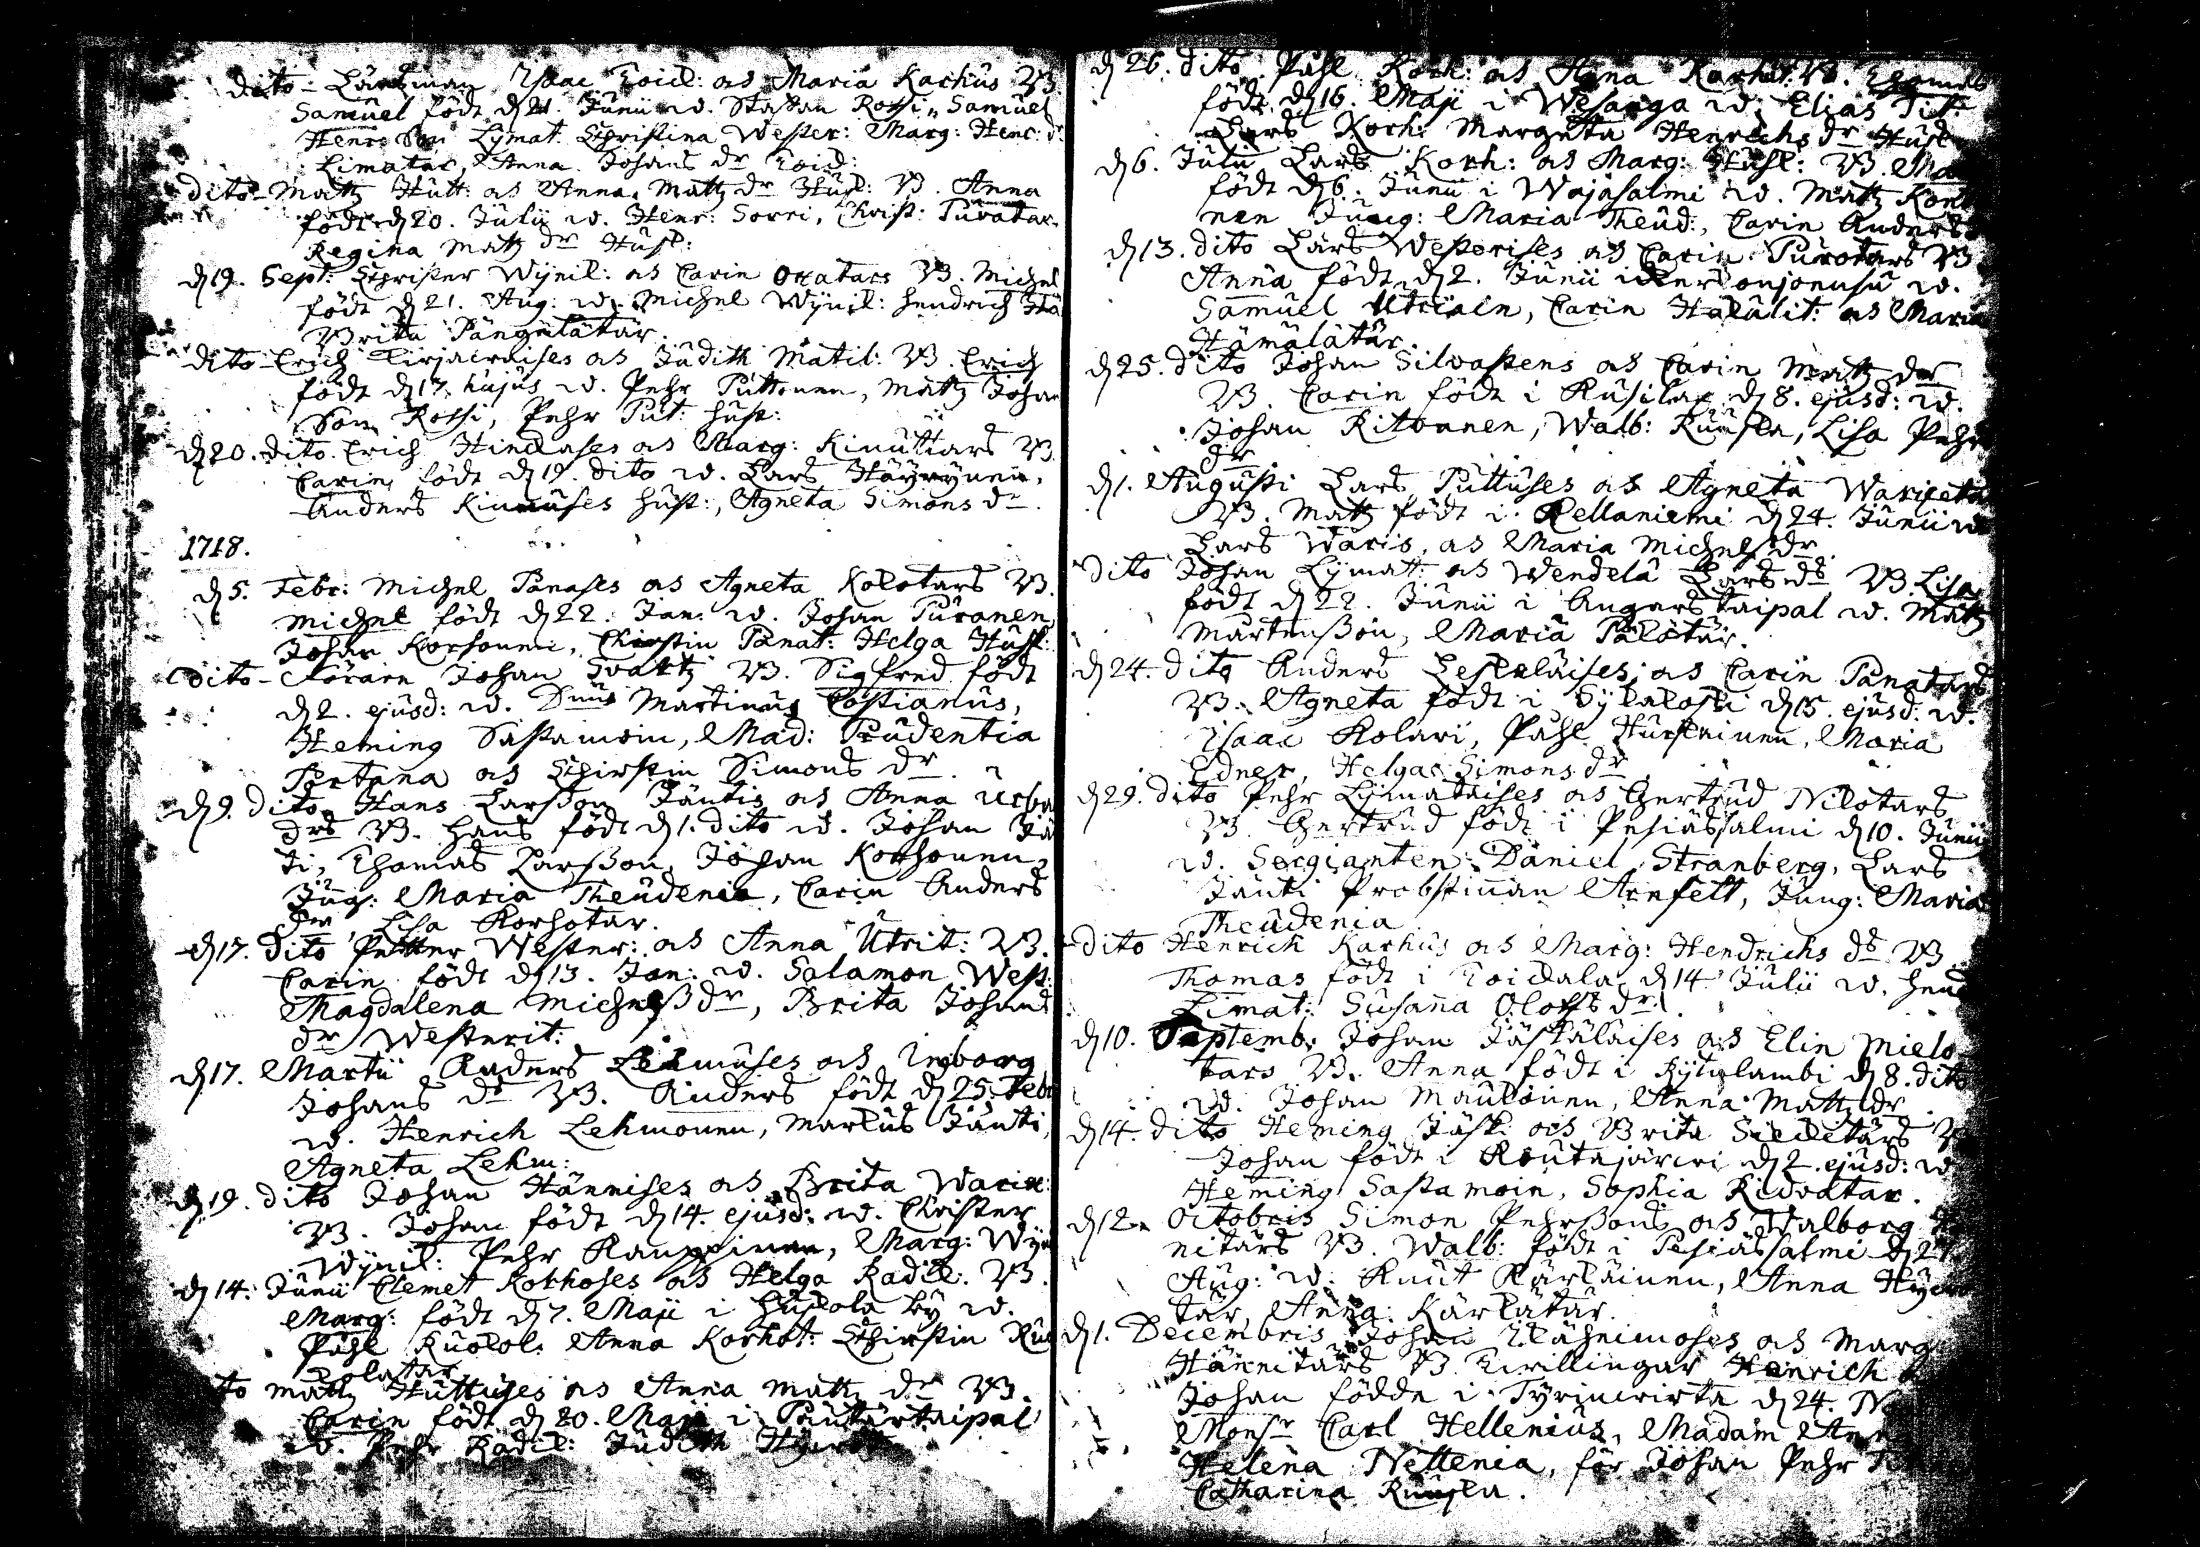 dito - Länsman Isaac Toid: as Maria Karhus B
Samuel född d 21. Junii w. Staffan Rossi, Samuel
Henr: Son Lymat. Christina Wester: Marg: Henr: dr
Limatar, Anna Johans dr Toid:
dito - Matz Hutt: as Anna Matz dr Husl: B. Anna
född d 20. Julii w. Henr: Sorri, Christ: Puratar
Regina Matz dr Husl:
d 19. Sept: Christer Wynil: as Carin Oxatars B. Michel
född d 21. Aug: w. Michel Wynil: Hendrich
Brita Pängälätär.
dito - Erich Tirjacaises as Judith Matil: B. Erich
född d 17. hujus w. Pehr Puttonen, Matz Johan
Son Rossi, Pehr Put: hust:
d 20. dito Erich Hindases as Marg: Kinuttars B.
Carin född d 19. dito w. Lars Häyrynen,
Anders Kinnuses hust:, Agneta Simons dr.
1718.
d 5. Febr: Michel Panases as Agneta Kolotars B.
Michel född d 22. Jan: w. Johan Puranen
Johan Korhonen, Christin Panat: Helga Husk:
dito - Klåcarn Johan Svartz B. Sigfred född
d 2. ejusd: w. Dnus Martinus Costianus,
Heming Sastamoin, Mad: Prudentia
Portana as Chirstin Simons dr.
d 9. dito Hans Larsson Jäntis as Anna Urba
drs B. Hans född d 1. dito w. Johan Jä
ti, Thomas Larsson, Johan Korhonen,
Jüng: Maria Theudenia, Carin Anders
dr, Lisa Korhotar.
d 17. dito Petter Wester: as Anna Utrit: B.
Carin född d 13. Jan: w. Salamon West:
Magdalena Michelsdr, Brita Johans
dr Westerit:
d 17. Martii Anders Lehmuses as Inborg
Johans dr B. Anders född d 25. Febr
w. Henrich Lehmonen, Markus Jänti,
Agneta Lehm:
d 19. dito Johan Hännises as Brita Warix:
B. Johan född d 14. ejusd: w. Christer
Wynil: Pehr Kauppinen, Marg: Wyn
d 14. Junii Clemet Kokkoses as Helga Radil: B.
Marg: född d 7. Maji i Huskola by w.
Påhl Kuokol: Anna Korhot: Chirstin Ku
kolatar
to Matz Huttuses as Anna Matz dr B.
Carin född d 20. Maji i Puttärtaipal
w. Pehr Radil: Judith
d 26. dito Påhl Kork: as Anna Karhut: B. Thomas
född d 16. Maji i Wesanga w. Elias Tit:
Lars Korh: Margeta Henrichs dr Husk
d 6. Julii Lars Korh: as Marg: Husk: B. Ma
född d 6. Junii i Wajasalmi w. Matz Kork
nen Jüng: Maria Theud:, Carin Anders
d 13. dito Lars Westerises as Carin Purotars B
Anna född d 2. Junii i w.
Samuel Utriain, Carin Hakulit: as Maria
Hämälätär.
d 25. dito Johan Silvastens as Carin Matz dr
B. Carin född i Kusilax d 8. ejusd: w.
Johan Ritonnen, Walb: Ruuska, Lisa Pehr
dr
d 1. Augusti Lars Puttuses as Agneta Wariceta
B. Matz född i Kellaniemi d 24. Junii w
Lars Waris, as Maria Michels dr.
dito Johan Lymatt: as Wendela Lars dr B. Lisa
född d 22. Junii i Angarstaipal w. Matz
Mårtensson, Maria Palotär.
d 24. dito Anders Leskeläises as Carin Panatars
B. Agneta född i Sykakoski d 15. ejusd: w.
Isaac Kolari, Påhl Hurskainen, Maria
Edner, Helga Simons dr
d 29. dito Pehr Lymataises as Gertrud Nilotars
B. Gertrud född i Pesiässalmi d 10. Junii
w. Sergianten Daniel Stranberg, Lars
Jänti Probstinnan Arnfelt, Jüng: Maria
Theudenia
dito Henrich Karhus as Marg: Hendrichs dr B
Thomas född i Toidala d 14. Julii w. Hend
Limat: Susanna Olofs dr.
d 10. Septemb. Johan Jäskäläises as Elin Mielo
tars B. Anna född i Rytylambi d 8. dito
w. Johan Maulonen, Anna Matz dr
d 14. dito Heming Jäsk: as Brita Siecketärs B
Johan född i Koutajärwi d 2. ejusd: w
Heming Sastamoin, Sophia Kidvatar.
d 12. Octobris Simon Pehrssons as Walborg
nitärs B. Walb: född i Pesiässalmi d 27
Aug: w. Knut Kärkäinen, Anna
tär, Anna Kärkätär.
d 1. Decembris Johan Wähnimoses as Marg
Hännitärs B Twillingar Henrich
Johan födde i Tyrinwirta d 24.
Monsr Carl Hellenius, Madam Ann
Helena Nettenia, för Johan Pehr
Catharina Ruuska.